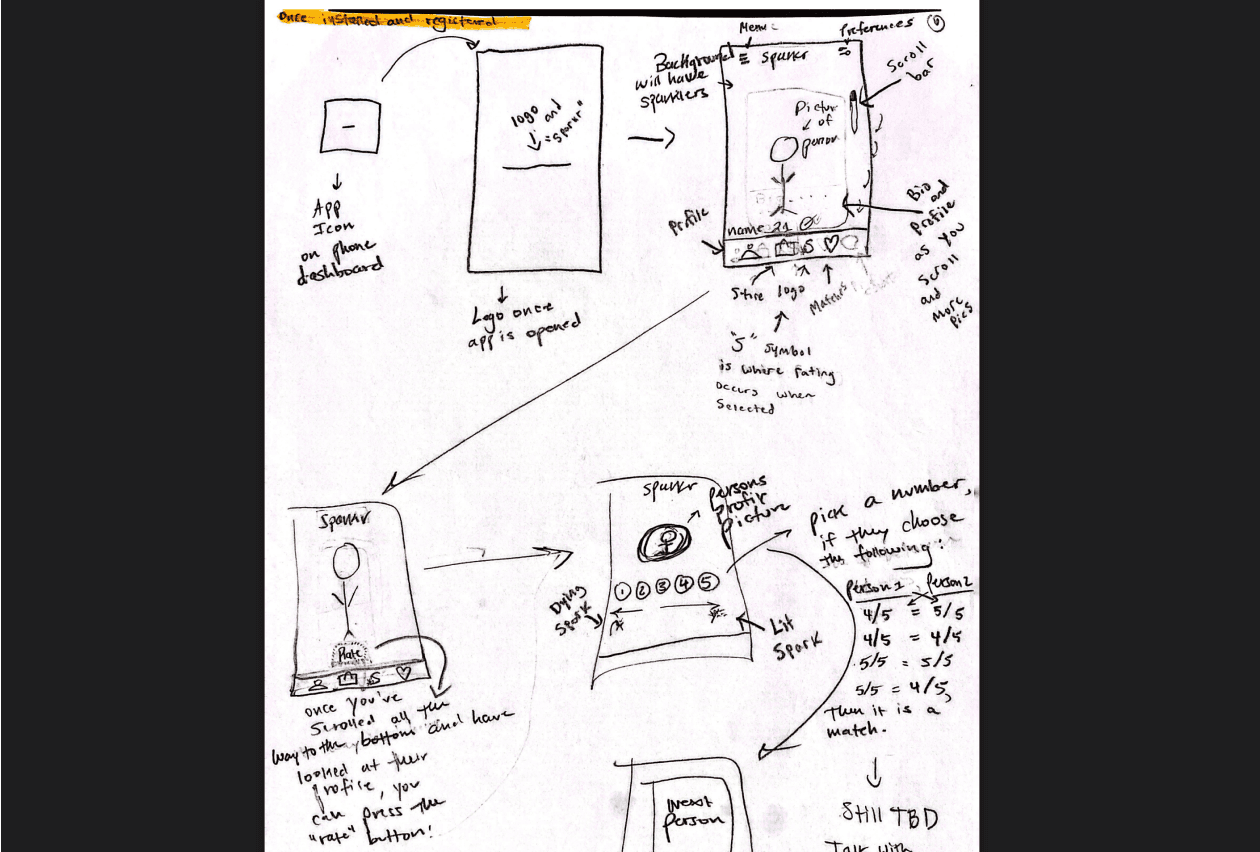 Once installed and registered
App
Icon
on phone
dashboard
logo and
"sparkr"
Logo once
app is opened
Menu
Preferences
6
Background
will have
sparklers
sparkr
Scroll
bar
Picture
of
person
Bio
and
Profile
as you
scroll
and
more
pics
Profile
name 21
S
Store
logo
Matches
"S" symbol
is where rating
occurs when
selected
Sparkr
Rate
S
once you've
scrolled all the
way to the bottom and have
looked at their
profile, you
can press the
"rate" button!
sparkr
persons
profile
picture
1 2 3 4 5
Dying
Spark
Lit
Spark
pick a number,
if they choose
the following:
Person 1 Person 2
4/5 = 5/5
4/5 = 4/5
5/5 = 5/5
5/5 = 4/5,
Then it is a
match.
Next
person
Still TBD
Talk with